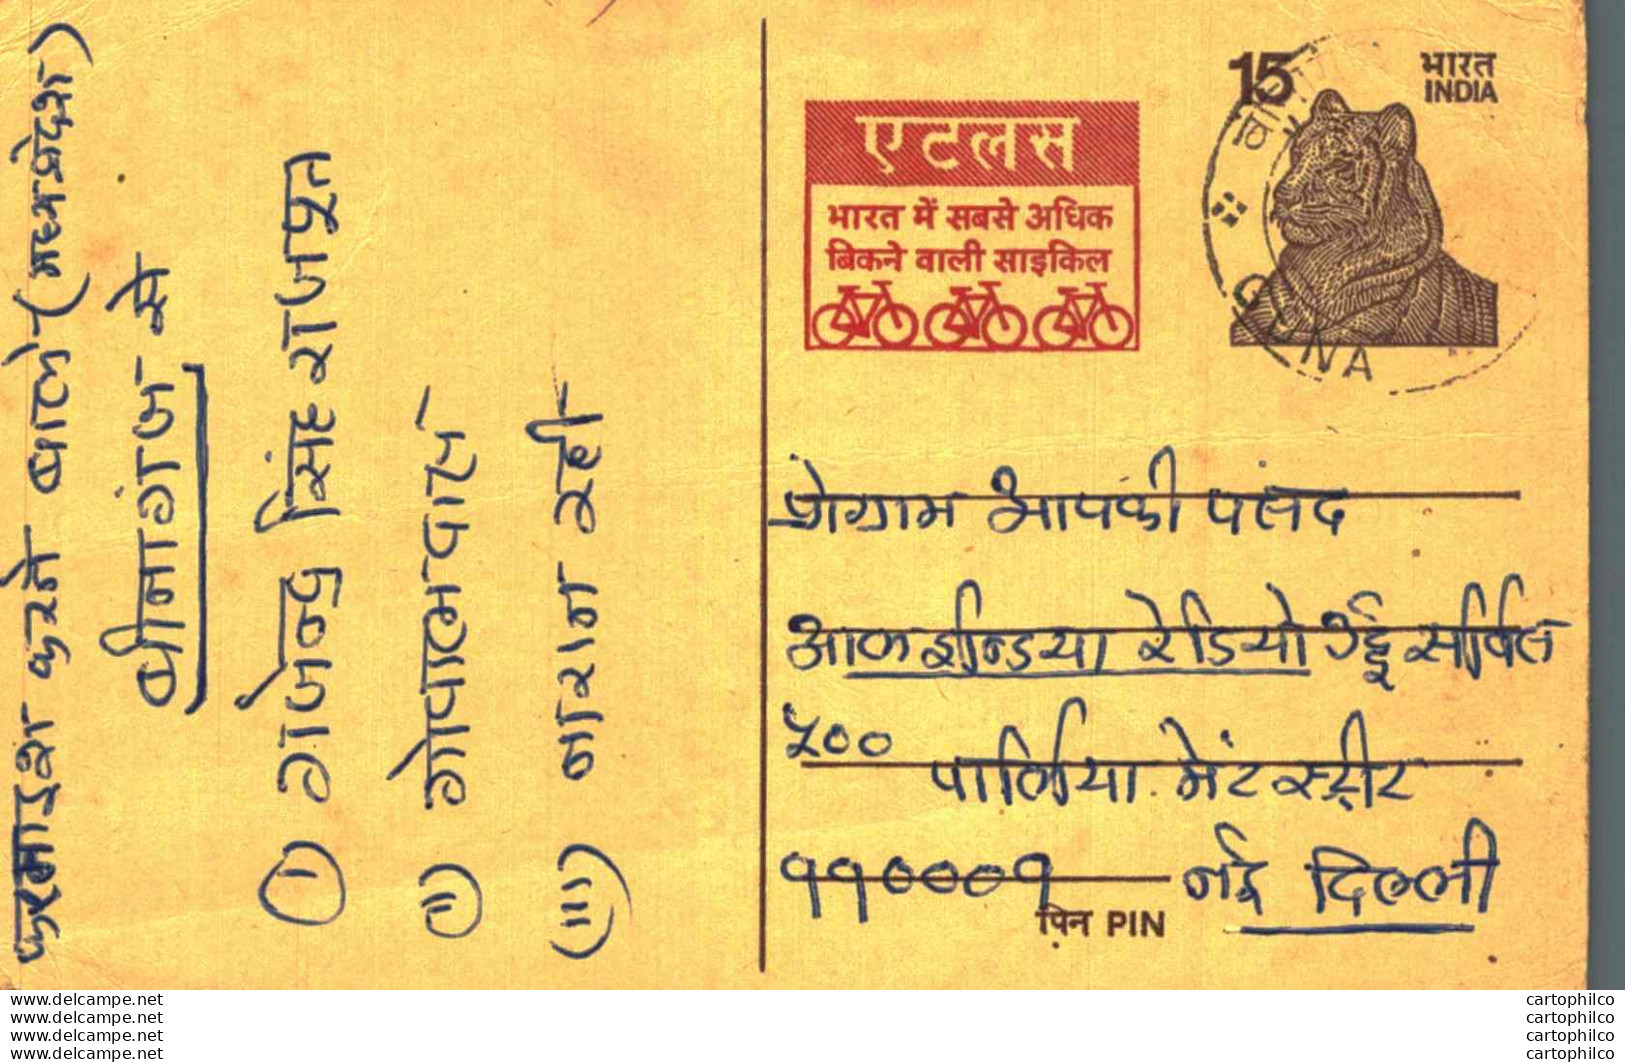 फरमाइश करने वाले (मध्यप्रदेश)
बीनागंज से
(I) गजेन्द्र सिंह राजपूत
(II) गोपालदास
(III)
एटलस
भारत में सबसे अधिक
बिकने वाली साइकिल
15
भारत
INDIA
GUNA
प्रोग्राम आपकी पसंद
आल ईन्डिया रेडियो उर्दू सर्विस
५०० पार्लिया मेंट स्ट्रीट
११०००१ नई दिल्ली
पिन PIN
www.delcampe.net
www.delcampe.net
www.delcampe.net
www.delcampe.net
cartophilco
cartophilco
cartophilco
cartophilco